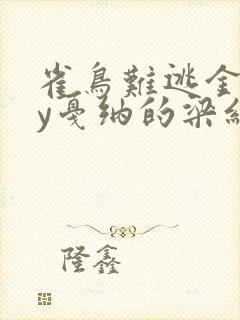 雀鳥難逃金
y戛纳的梁纟
隆鑫